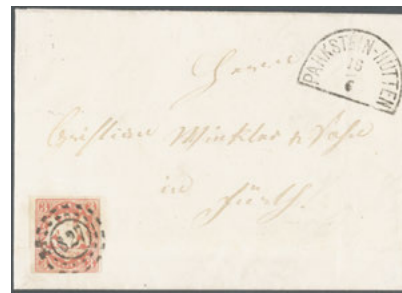 PARKSTEIN-HÜTTEN
16
6
Herrn
Christian Winkler & Sohn
in
Fürth.
827